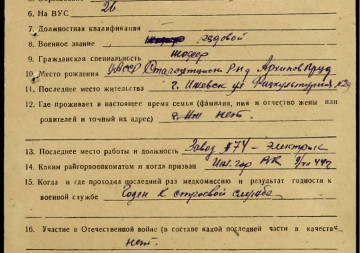 6. На ВУС 26
7. Должностная квалификация
8. Военное звание рядовой
9. Гражданская специальность шофер
10. Место рождения Р-н д Архипов Пруд
11. Последнее место жительства г. Ижевск ул Физкультурная
12. Где проживает в настоящее время семья (фамилия, имя и отчество жены или
родителей и точный их адрес) нет.
13. Последнее место работы и должность Завод №74 - Электрик
14. Каким райгорвоенкоматом и когда призван
15. Когда и где проходил последний раз медкомиссию и результат годности к
военной службе Годен к строевой службе
16. Участие в Отечественной войне (в составе какой последней части в качестве
нет.